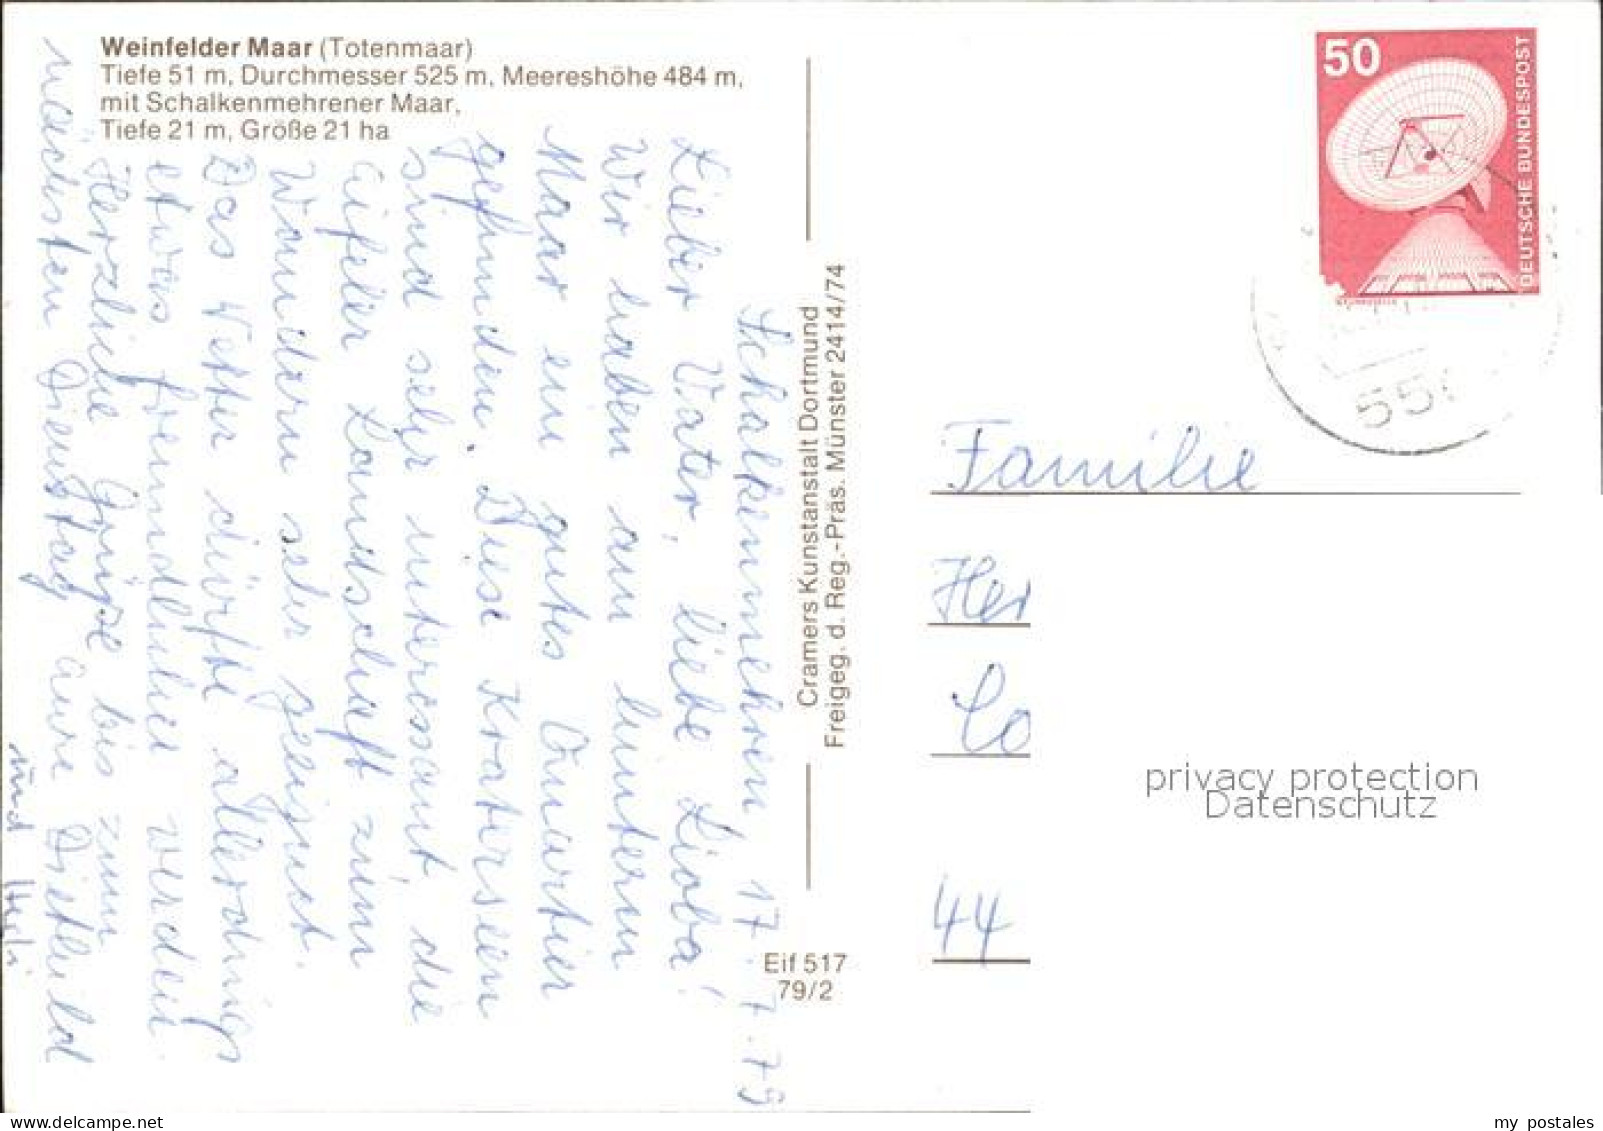 Weinfelder Maar (Totenmaar)
Tiefe 51 m, Durchmesser 525 m, Meereshöhe 484 m,
mit Schalkenmehrener Maar,
Tiefe 21 m, Größe 21 ha
Schalkenmehren, 17.7.79
Lieber Vater, liebe Lioba!
Wir haben am hinteren
Maar ein gutes Quartier
gefunden. Diese Kraterseen
sind sehr interessant, die
Eifeler Landschaft zum
Wandern sehr geeignet.
Das Wetter dürfte allerdings
etwas freundlicher werden.
Herzliche Grüße bis zum
nächsten Dienstag eure Diethild
und
Cramers Kunstanstalt Dortmund
Freigeg. d. Reg.-Präs. Münster 2414/74
Eif 517
79/2
50
DEUTSCHE BUNDESPOST
55
Familie
Her
Lo
44
privacy protection
Datenschutz
my postales
www.delcampe.net